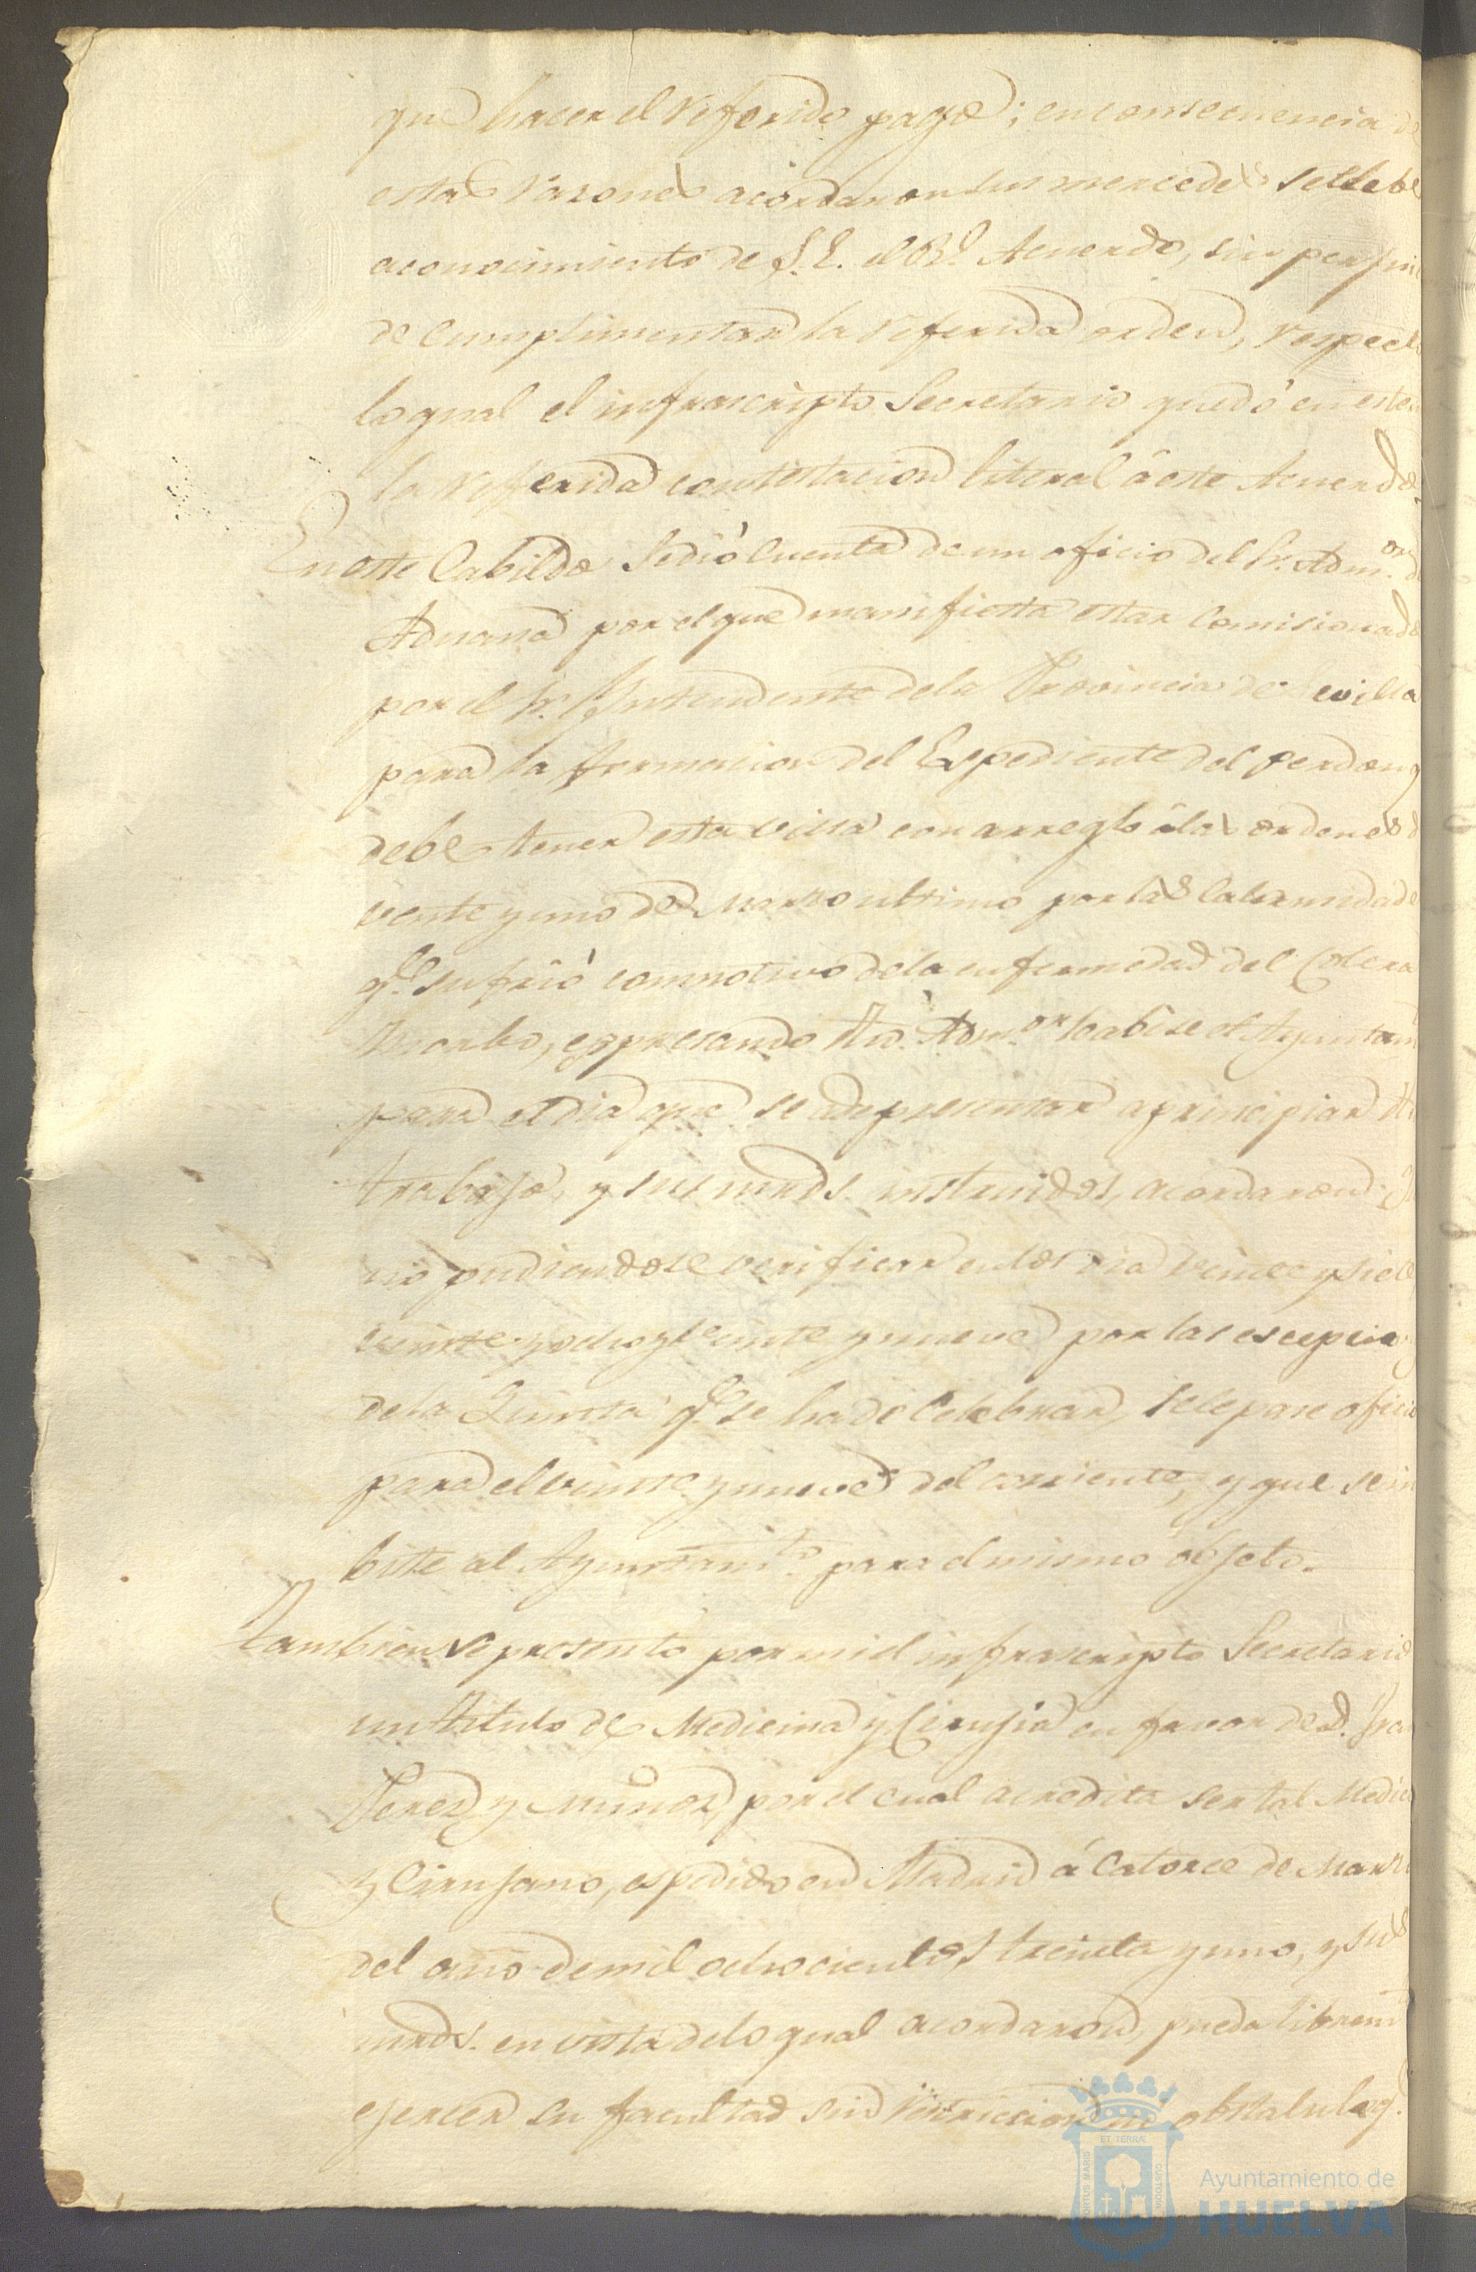 que hacer el referido pago; en consecuencia de
estas razones acordaron sus mercedes se llebe
a conocimiento de S.E. el Rl. Acuerdo, sin perjui
de cumplimentar la referida orden, respecto
lo qual el infrascripto Secretario quedó en esten
la referida contestacion literal á este Acuerdo
En este Cabildo se dió cuenta de un oficio del Sr. Admor. de
Aduana por el que manifiesta estar comisionado
por el Sr. Yntendente de la Provincia de Sevilla
para la formacion del Espediente del perdon q
debe tener esta villa con arreglo á las ordenes d
veinte y uno de Marzo ultimo por las calamidade
qe. sufrió con motivo de la enfermedad del Colera
Morbo, espresando dho. Admor. se abise al Ayuntam
para el dia que se a de presentar a principiar dho
trabajo, y sus mrds. instruidos, acordaron: q
no pudiendose verificar en los dia veinte y siete
veinte y ocho y veinte y nueve por las escepcio
de la Quinta qe. se ha de celebrar, se le pase oficio
para el veinte y nueve del corriente, y que se in
bite al Ayuntamto. para el mismo objeto.
Tambien se presentó por mi el infrascripto Secretario
un titulo de Medicina y Cirujia en favor de D. Fran
Perez y Muñoz, por el cual acredita ser tal Medico
y Cirujano, espedido en Madrid á catorce de Marzo
del año de mil ochocientos treinta y uno, y sus
mrds. en vista de lo qual acordaron, pueda librem
ejercer su facultad sin restriccion ni obstaculo q.
ET TERRÆ
PORTUS MARIS
CUSTODIA
Ayuntamiento de
HUELVA